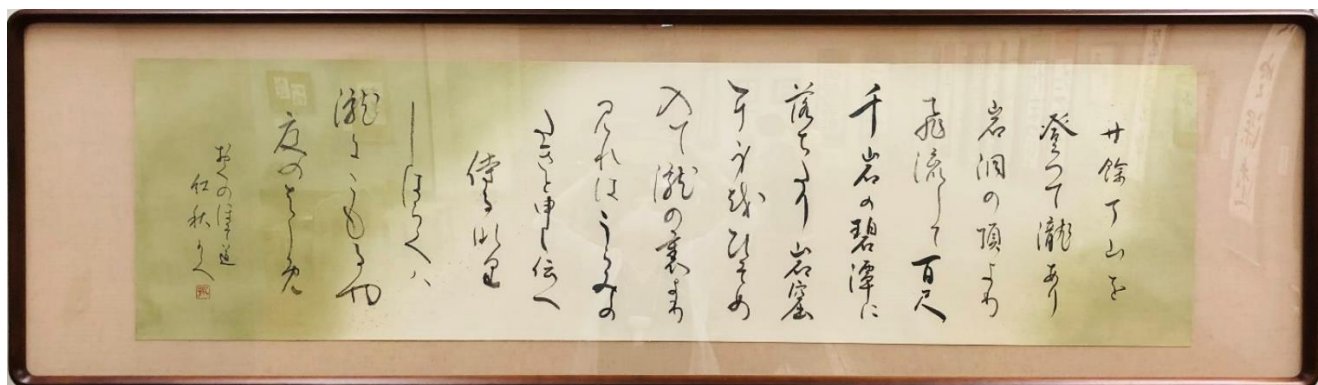 廿餘丁山を
登つて瀧あり
岩洞の頂より
飛流して百尺
千岩の碧潭に
落ちたり岩窟
に身をひそめ
入て瀧の裏より
みれはうらみの
たきと申し伝へ
侍るなり
しはらくハ
瀧にこもるや
夏のはしめ
おくのほそ道
紅秋かく